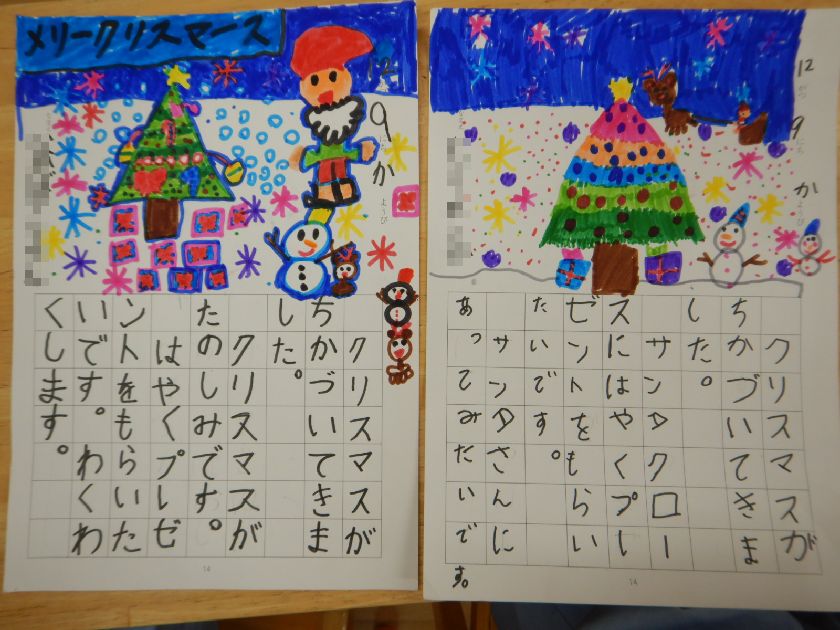 メリークリスマース
12
9 にち
か ようび
クリスマスが
ちかづいてきま
した。
クリスマスが
たのしみです。
はやくプレゼ
ントをもらいた
いです。わくわ
くします。
14
12 がつ
9 にち
か ようび
クリスマスが
ちかづいてきま
した。
サンタクロー
スにはやくプレ
ゼントをもらい
たいです。
サンタさんに
あってみたいで
す。
14